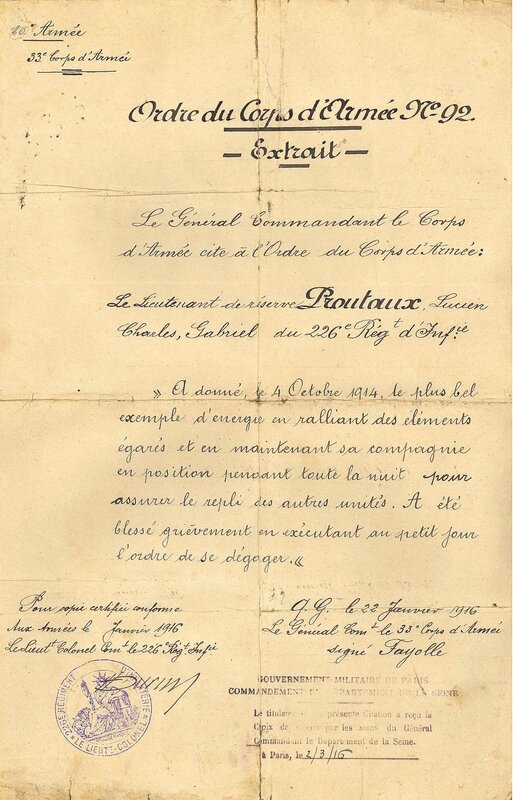 10e Armée
33e Corps d'Armée
Ordre du Corps d'Armée No 92.
— Extrait —
Le Général Commandant le Corps
d'Armée cite à l'Ordre du Corps d'Armée:
Le Lieutenant de réserve Proutaux, Lucien
Charles, Gabriel du 226e Régt d'Infie
» A donné, le 4 Octobre 1914, le plus bel
exemple d'energie en ralliant des éléments
égarés et en maintenant sa compagnie
en position pendant toute la nuit pour
assurer le repli des autres unités. A été
blessé grièvement en exécutant au petit jour
l'ordre de se dégager. «
Pour copie certifiée conforme
Aux Armées le Janvier 1916
Le Lieutt Colonel Comt le 226e Régt Infie
226E REGIMENT D'INFANTERIE
* LE LIEUTT-COLONEL *
Q.G. le 22 Janvier 1916
Le Général Comt le 33e Corps d'Armée
signé Fayolle
GOUVERNEMENT MILITAIRE DE PARIS
COMMANDEMENT DU DEPARTEMENT DE LA SEINE
Le titulaire de la présente Citation a reçu la
Croix de Guerre par les soins du Général
Commandant le Departement de la Seine.
à Paris, le 2/3/16